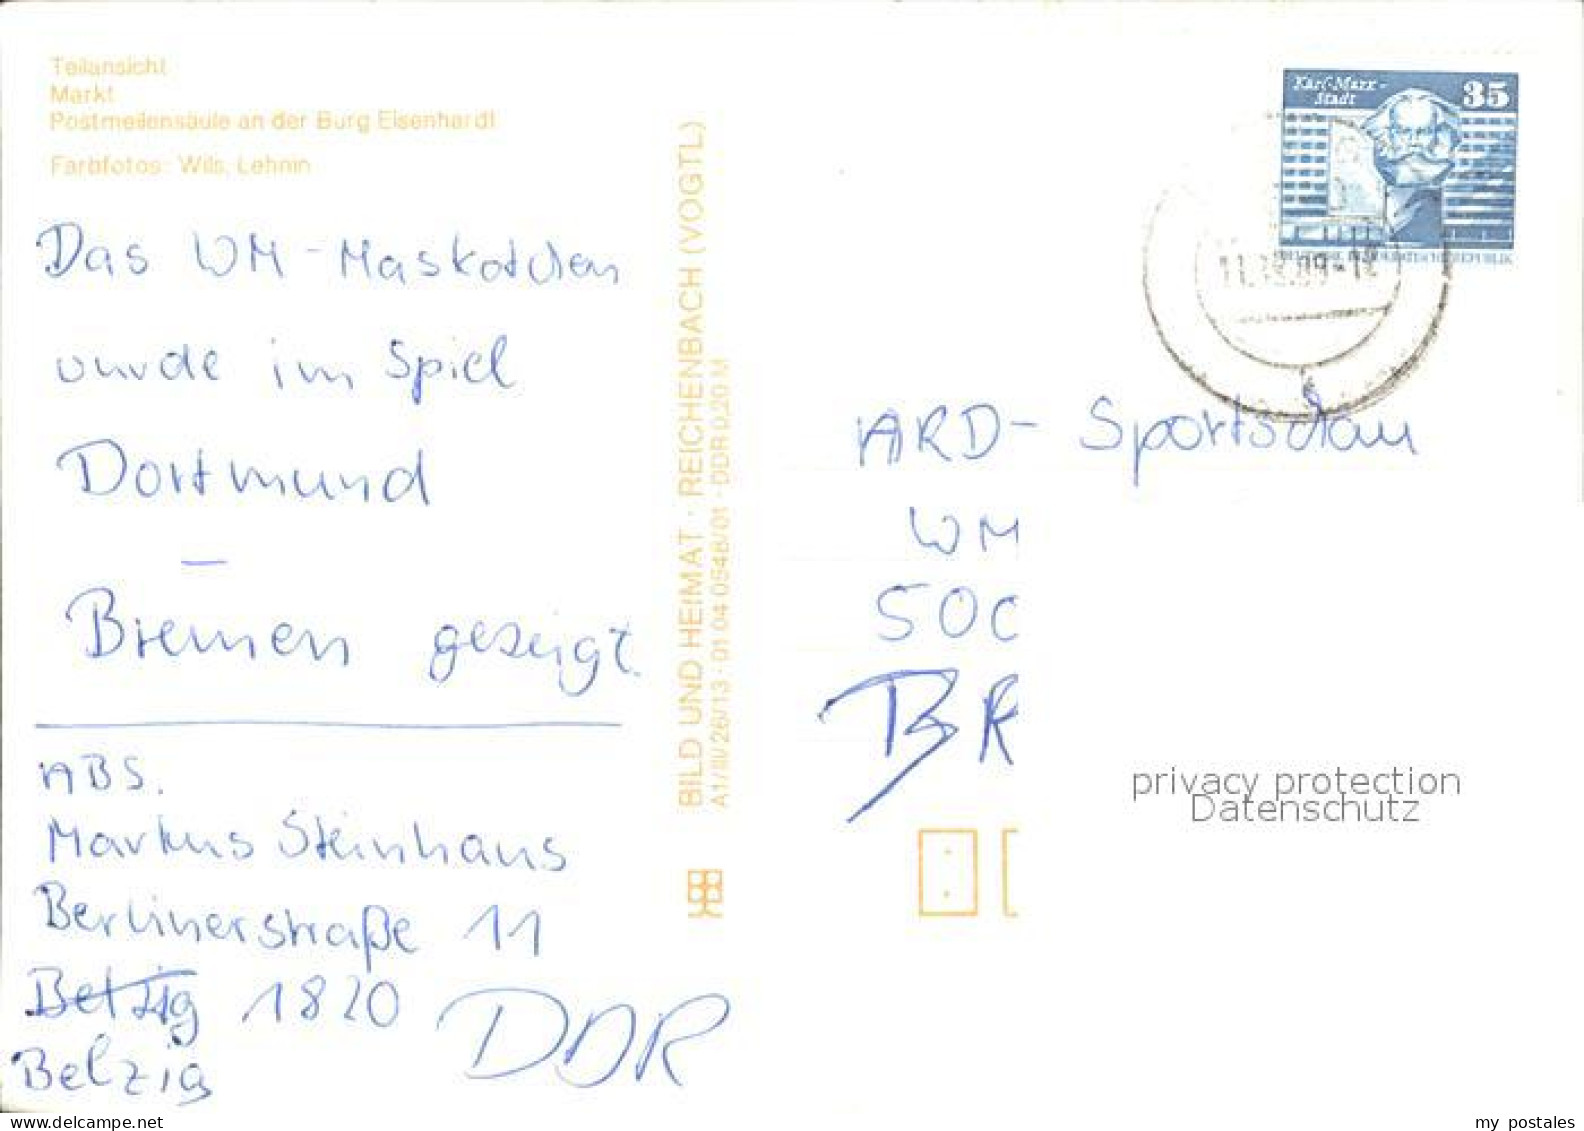 Teilansicht
Markt
Postmeilensäule an der Burg Eisenhardt
Farbfotos: Wils, Lehnin
Das WM-Maskotchen
wurde im Spiel
Dortmund
—
Bremen gezeigt.
ABS.
Markus Steinhaus
Berlinerstraße 11
Betzig 1820 DDR
Belzig
BILD UND HEIMAT · REICHENBACH (VOGTL)
A1/III/26/13 · 01 04 0546/01 · DDR 0,20 M
Karl-Marx-
Stadt
35
DEUTSCHE DEMOKRATISCHE REPUBLIK
ARD- Sportschau
WM
500
BR
privacy protection
Datenschutz
my postales